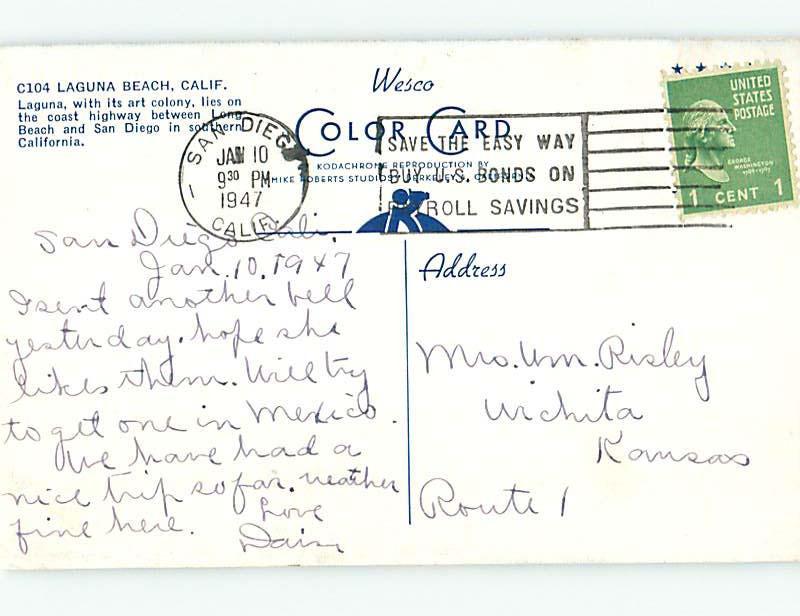 C104 LAGUNA BEACH, CALIF.
Laguna, with its art colony, lies on
the coast highway between Long
Beach and San Diego in southern
California.
Wesco
COLOR CARD
KODACHROME REPRODUCTION BY
MIKE ROBERTS STUDIOS, BERKELEY,
SAN DIEGO
JAN 10
9 30 PM
1947
CALIF.
SAVE THE EASY WAY
BUY U.S. BONDS ON
PAYROLL SAVINGS
UNITED
STATES
POSTAGE
GEORGE
WASHINGTON
1789-1797
1 CENT 1
San Diego Cali.
Jan. 10, 1947
I sent another bell
yesterday. hope she
likes them. Will try
to get one in Mexico.
We have had a
nice trip so far. weather
fine here.
Love
Daisy
Address
Mrs. Wm. Risley
Wichita
Kansas
Route 1